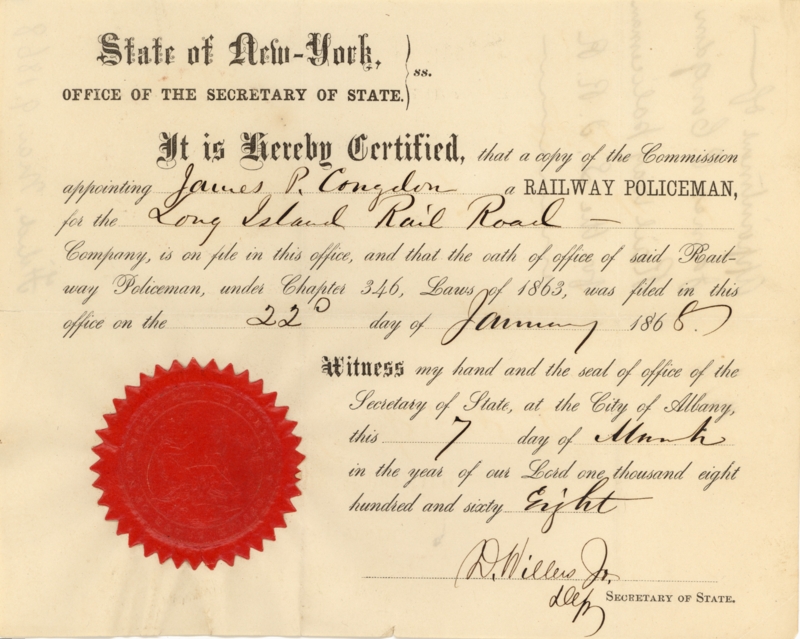 State of New-York,
OFFICE OF THE SECRETARY OF STATE. } ss.
It is Hereby Certified, that a copy of the Commission
appointing James P. Congdon a RAILWAY POLICEMAN,
for the Long Island Rail Road —
Company, is on file in this office, and that the oath of office of said Rail-
way Policeman, under Chapter 346, Laws of 1863, was filed in this
office on the 22d day of January 1868.
Witness my hand and the seal of office of the
Secretary of State, at the City of Albany,
this 7 day of March
in the year of our Lord one thousand eight
hundred and sixty Eight
D. Willers Jr.
Dep SECRETARY OF STATE.